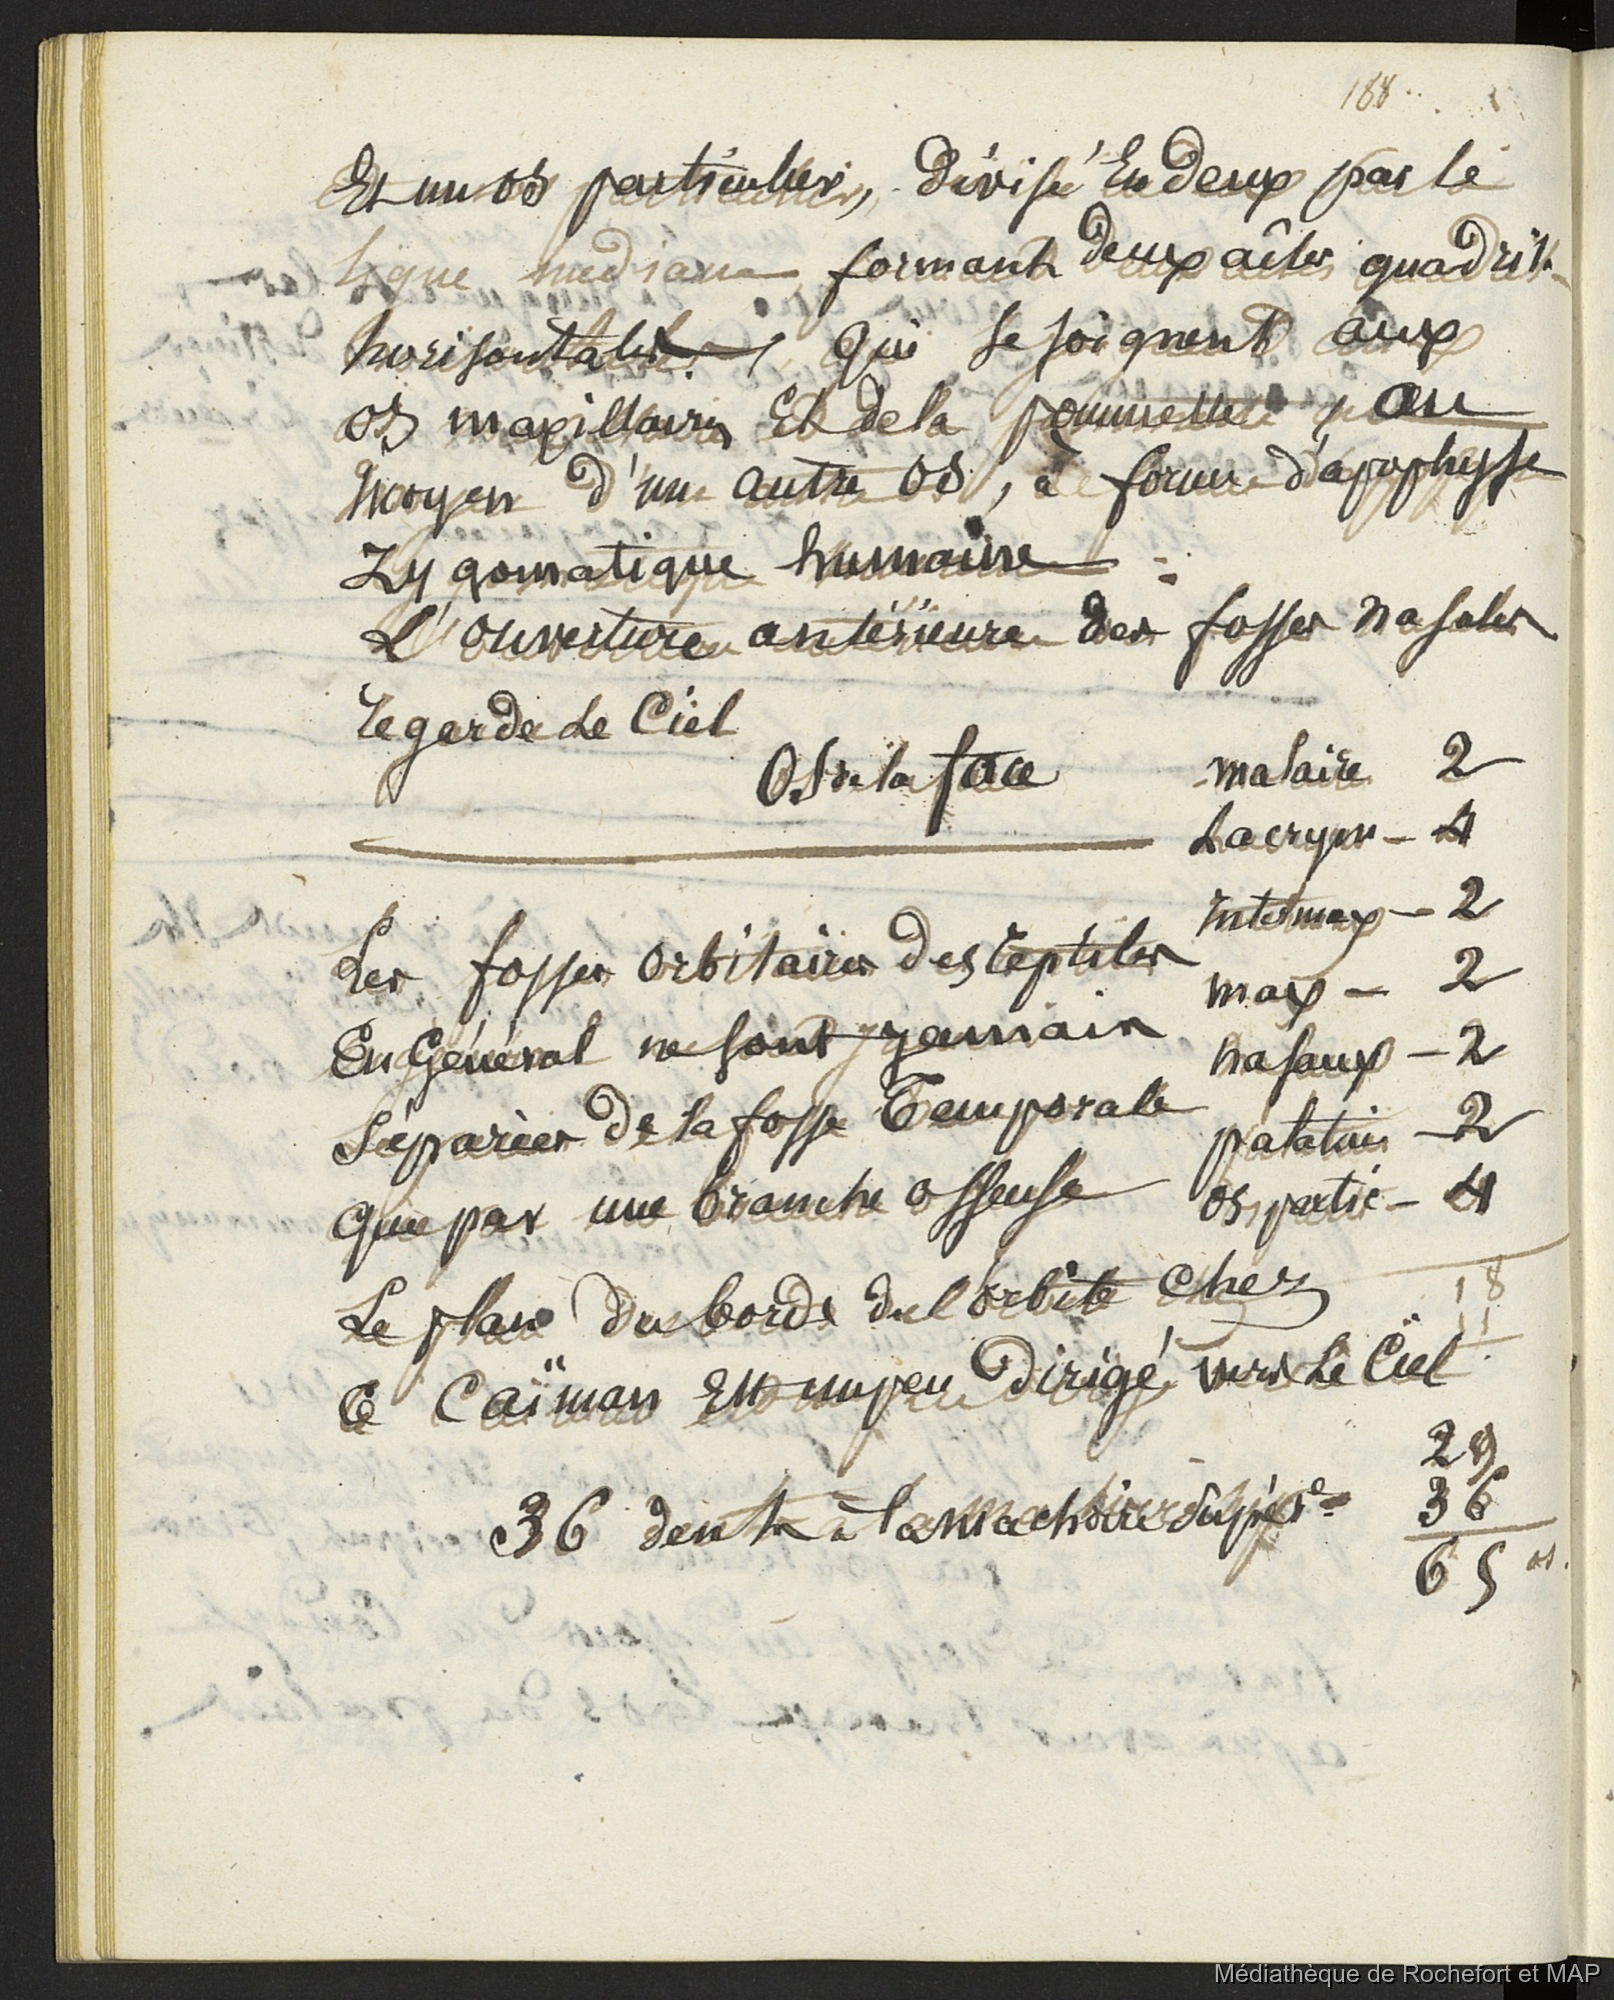 188
Et un os particulier, divisé en deux par le
ligne mediane formant deux aîles quadril.
horisontales, qui se joignent aux
os maxillaires Et de la pommette, au
moyen d'un autre os, à forme d'apophysse
Zygomatique humaine :
L'ouverture antérieure des fosses nasales
regarde Le Ciel
Os de la face
malaire 2
Lacrym - 4
intermax - 2
max - 2
nasaux - 2
palatin - 2
os partic - 4
18
11
29
36
65 os.
Les fosses orbitaires des reptiles
En Général ne sont jamais
Séparées de la fosse Temporale
que par une branche osseuse
Le plan du bord de l'orbite chez
Le Caïman Est un peu dirigé vers Le Ciel
36 dents à la machoire supére
Médiathèque de Rochefort et MAP